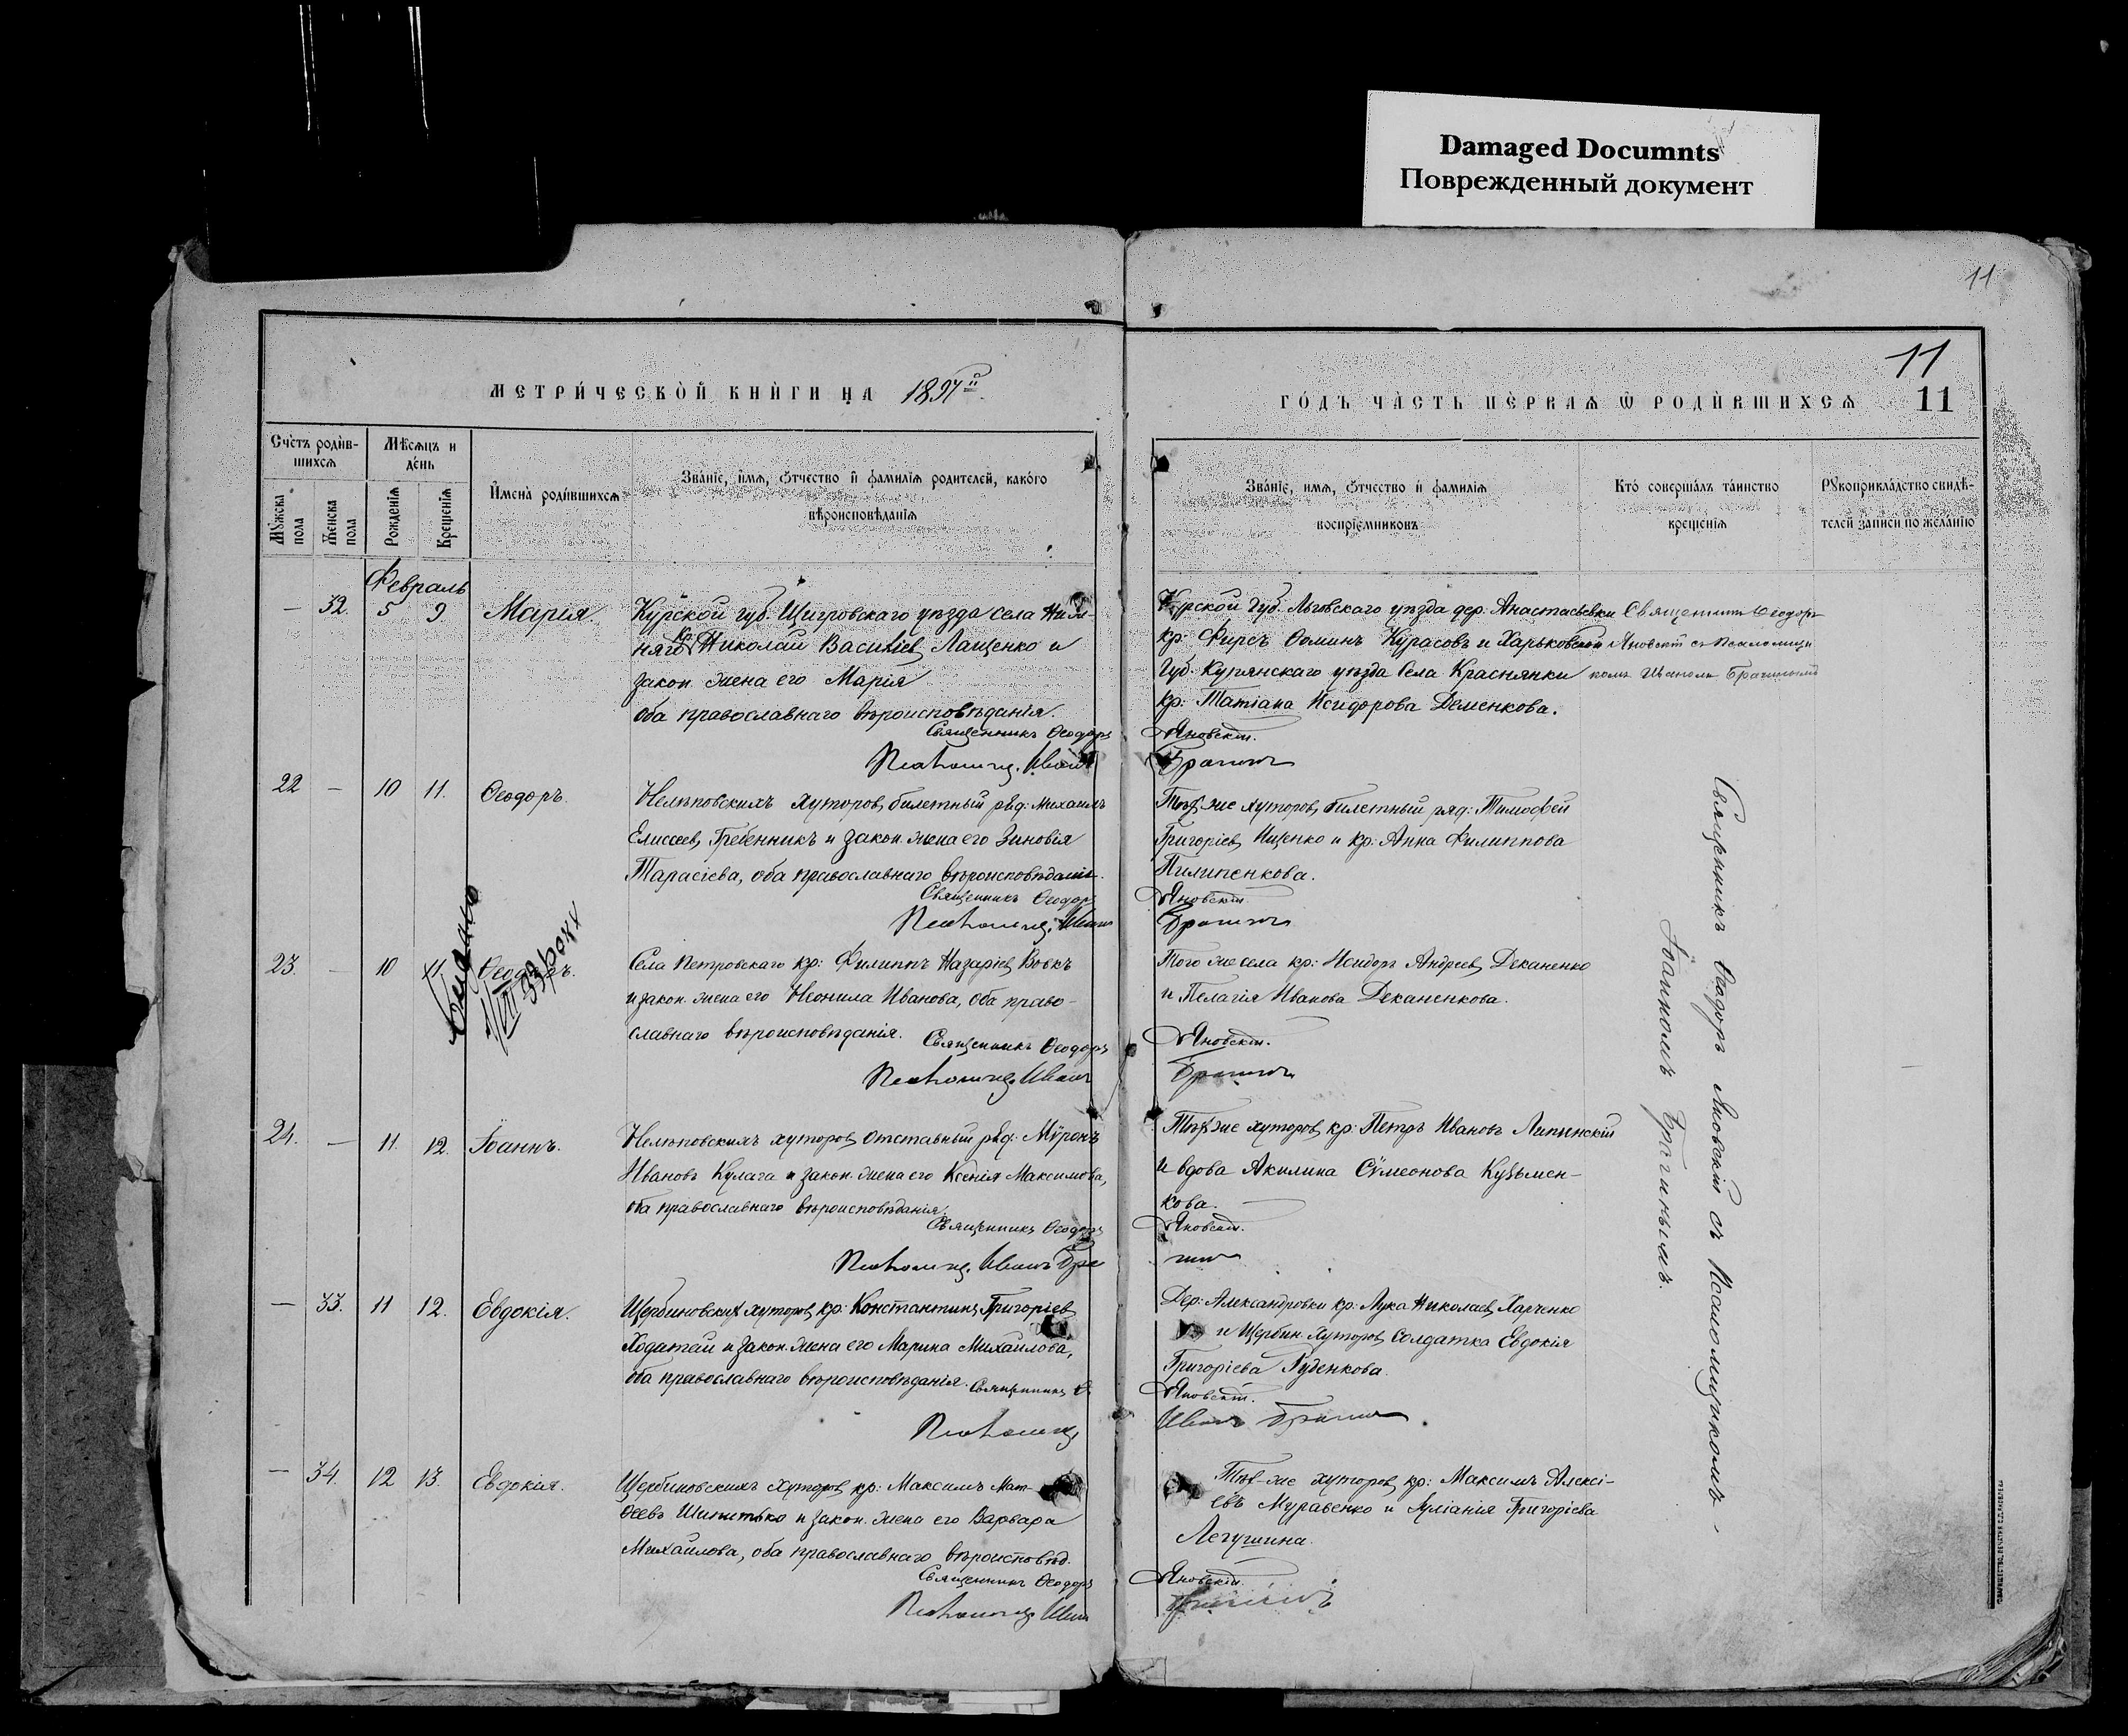 Damaged Documnts
Поврежденный документ
11
11
МЕТРИ́ЧЕСКОЙ КНИ́ГИ НА 1897й
ГО́ДЪ ЧА́СТЬ ПЕ́РВАЯ Ѡ РОДИ́ВШИХСЯ 11
Счетъ роди́в-
шихся
Мѣсяцъ и
де́нь
Мꙋжска
пола
Женска
пола
Рожденія
Крещенія
Имена̀ роди́вшихся
Зва́ніе, и́мя, ѻтчество и фамилія родителей, како́го
вѣроисповѣданія
Зва́ніе, имя, ѻтчество и фамилія
воспріемниковъ
Кто̀ соверша́лъ та́инство
крещенія
Рꙋкоприкла́дство свидѣ-
телей записи по жела́нію
Февраль
— 32. 5 9 Марія.
Курской губ. Щигровскаго уѣзда села
няго кр. Николай Васильев Лащенко и
закон. жена его Марія
оба православнаго вѣроисповѣданія.
Священникъ Ѳеодоръ
Псаломщ. Иванъ
Курской губ. Льговскаго уѣзда дер. Анастасьевки
кр: Фирсъ Ѳоминъ Курасовъ и Харьковской
Губ. Купянскаго уѣзда Села Краснянки
кр: Татіана Исидорова Деменкова.
Яновскій.
Брагинъ
Священникъ Ѳеодоръ
Яновскій съ Псаломщи
комъ Іоанномъ Брагинымъ
22 — 10 11. Ѳеодоръ.
Нелѣповскихъ хуторов, билетный ряд: Михаилъ
Елисеев, Гребенникъ и закон. жена его Зиновія
Тарасіева, оба православнаго вѣроисповѣданія.
Священникъ Ѳеодоръ
Псаломщ. Иванъ
Тѣхъ-же хуторов, билетный ряд: Тимофей
Григоріев, Ищенко и кр: Анна Филиппова
Пилипенкова.
Яновскій
Брагинъ
23. — 10 11 Ѳеодоръ.
Выдано
Села Петровскаго кр: Филиппъ Назаріев, Вовкъ
и закон. жена его Неонила Иванова, оба право-
славнаго вѣроисповѣданія.
Священникъ Ѳеодоръ
Псаломщ. Иванъ
Того же села кр: Исидоръ Андреев, Деканенко
и Пелагія Иванова Деканенкова.
Яновскій.
Брагинъ
24. — 11. 12. Іоаннъ.
Нелѣповскихъ хуторов, отставный ряд: Мѵронъ
Ивановъ Кулага и закон. жена его Ксенія Максимова,
оба православнаго вѣроисповѣданія.
Священникъ Ѳеодоръ
Псаломщ. Иванъ Бра
Тѣхъ-же хуторов, кр: Петръ Ивановъ Липинскій
и вдова Акилина Сѵмеонова Кузьмен-
кова.
Яновскій.
гинъ
— 33. 11 12. Евдокія.
Щербиновских хуторов, кр: Константинъ Григоріев,
Ходатай и закон. жена его Марина Михайлова,
оба православнаго вѣроисповѣданія. Священникъ Ѳ.
Псаломщ.
Дер: Александровки кр: Лука Николаев, Харченко
и Щербин. хуторов, солдатка Евдокія
Григоріева Руденкова.
Яновскій.
Иванъ Брагинъ
— 34. 12 13. Евдокія.
Щербиновскихъ хуторов, кр: Максимъ Мат-
ѳеевъ Шипитько и закон. жена его Варвара
Михайлова, оба православнаго вѣроисповѣд.
Священникъ Ѳеодоръ
Псаломщ. Иван
Тѣхъ-же хуторов, кр: Максимъ Алексі-
евъ Муравенко и Іуліанія Григоріева
Легушина.
Яновскій.
Брагинъ
Священникъ Ѳеодоръ Яновскій съ Псаломщикомъ
Іоанномъ Брагинымъ.